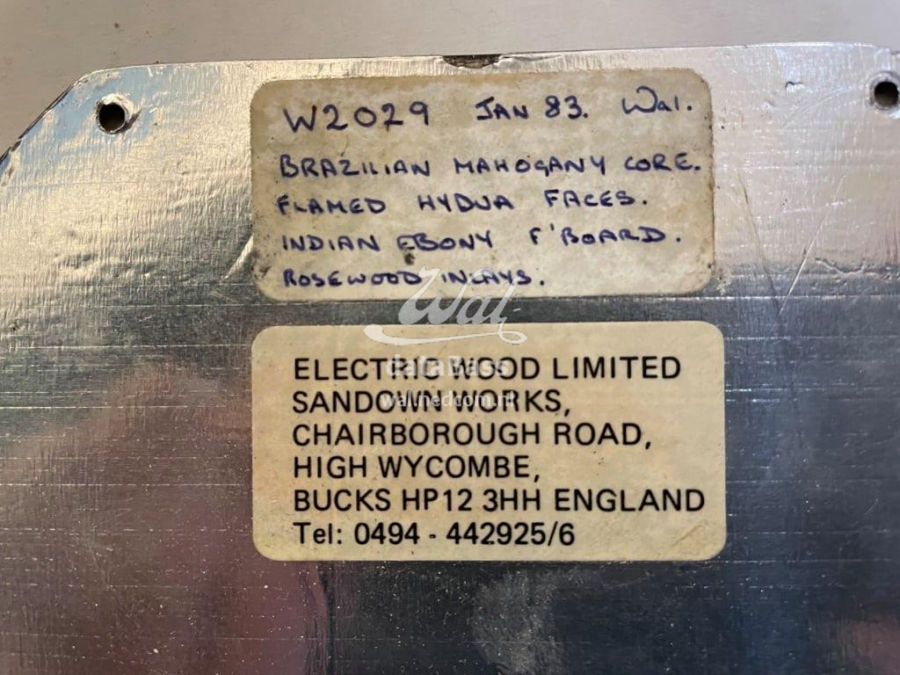 W2029 JAN 83. Wal.
BRAZILIAN MAHOGANY CORE.
FLAMED HYDUA FACES.
INDIAN EBONY F'BOARD.
ROSEWOOD INLAYS.
Wal
dataBass
ELECTRIC WOOD LIMITED
SANDOWN WORKS,
CHAIRBOROUGH ROAD,
HIGH WYCOMBE,
BUCKS HP12 3HH ENGLAND
Tel: 0494 - 442925/6